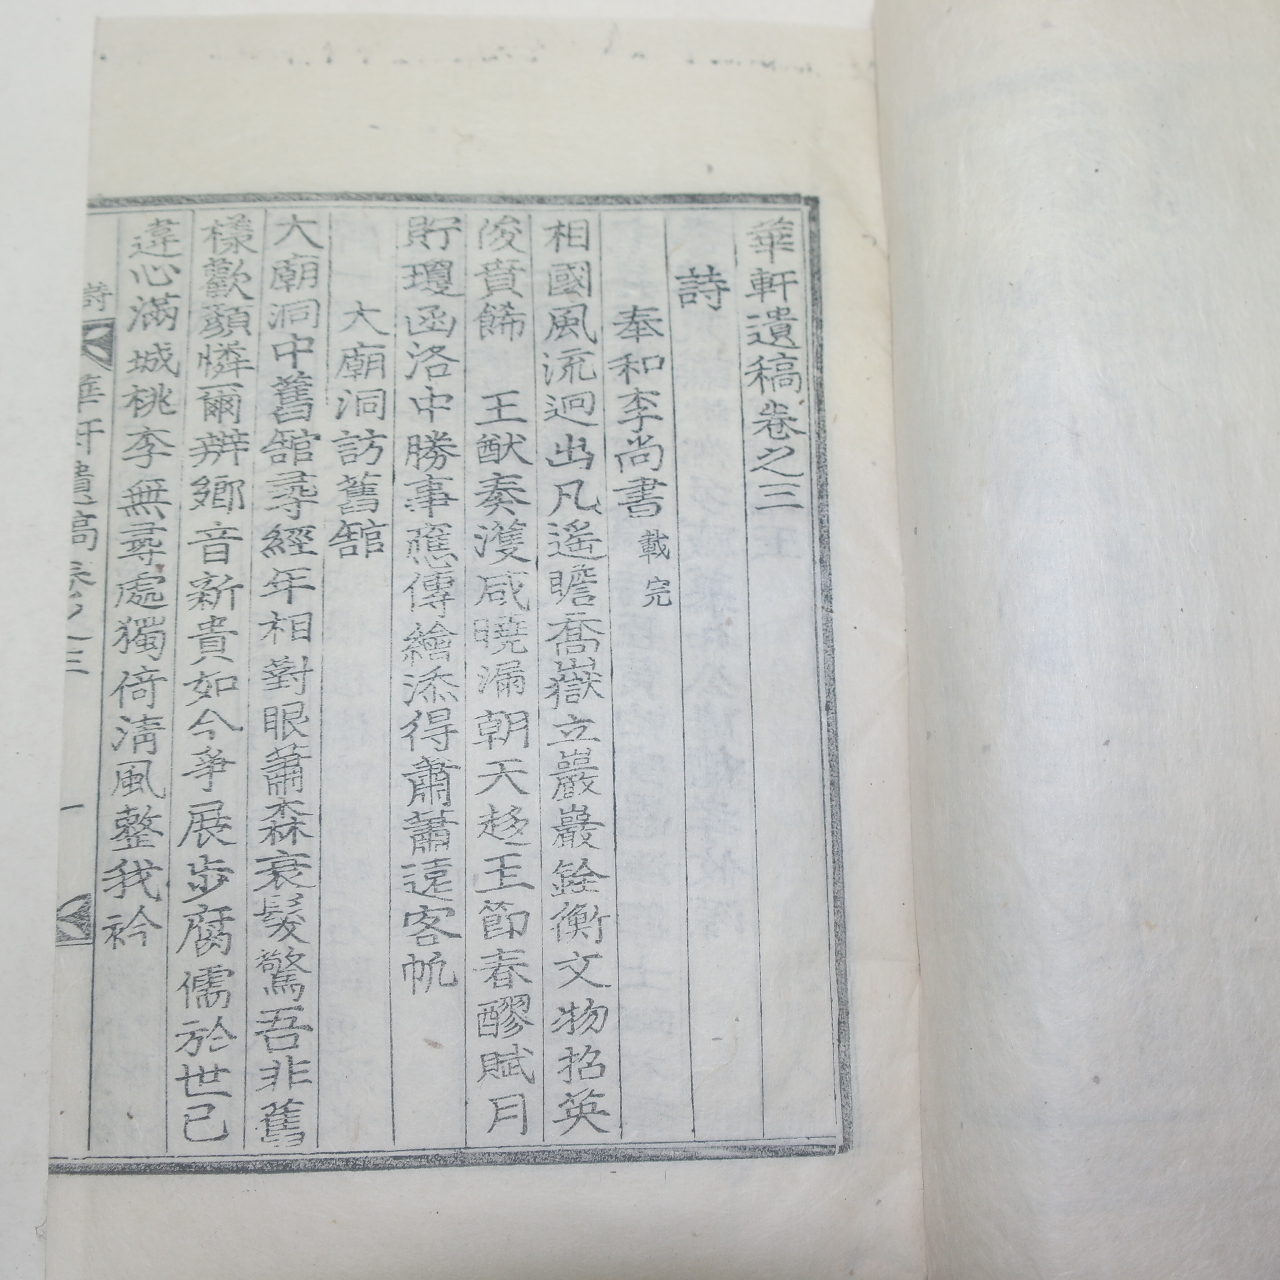 華軒遺稿卷之三
詩
奉和李尚書 載完
相國風流迥出凡遙瞻喬嶽立巖巖銓衡文物招英
俊賁餙 王猷奏濩咸曉漏朝天趍玉節春醪賦月
貯瓊函洛中勝事應傳繪添得肅蕭遠客帆
大廟洞訪舊館
大廟洞中舊館尋經年相對眼蕭森衰髮驚吾非舊
樣歡顔憐爾辨鄉音新貴如今爭展步腐儒於世已
違心滿城桃李無尋處獨倚淸風整我衿
詩 華軒遺稿卷之三 一